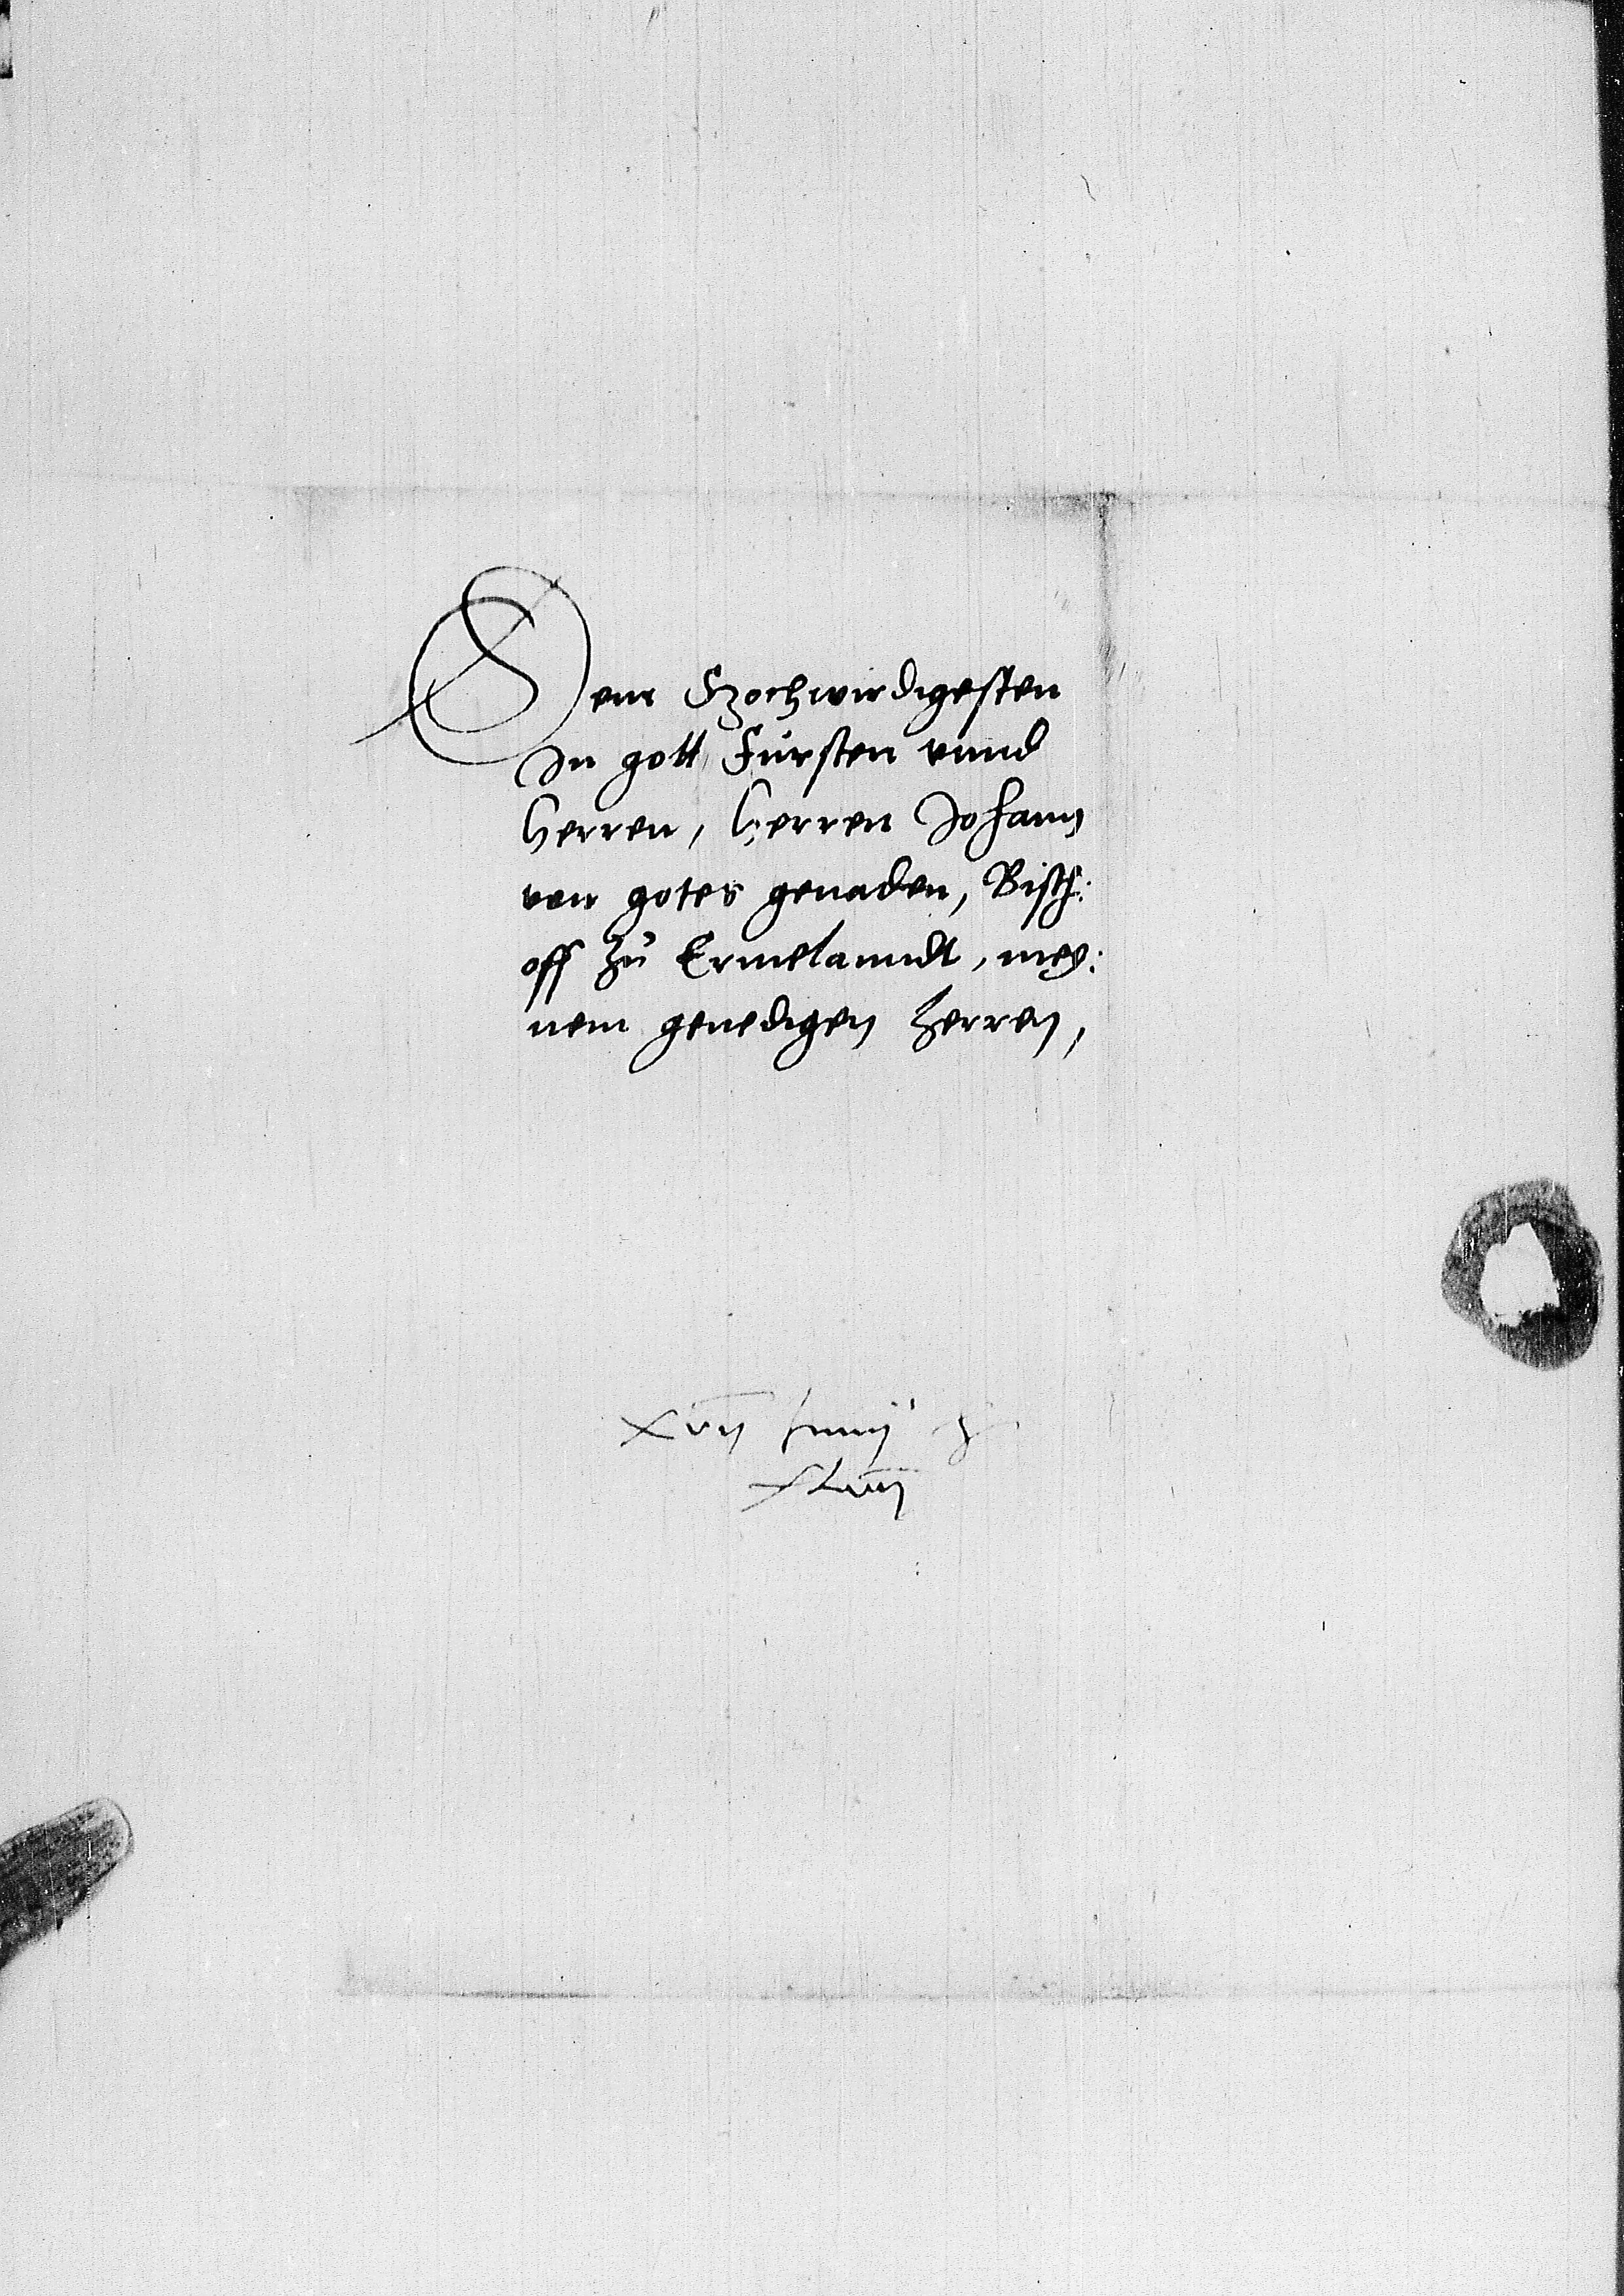 Dem Hochwirdigesten
In gott Fürsten vnnd
Herren, herren Johann
von gotes genaden, Bisch:
off zů Ermelanndt, mey:
nem genedigen Herren,
xvij Junij
xlviij